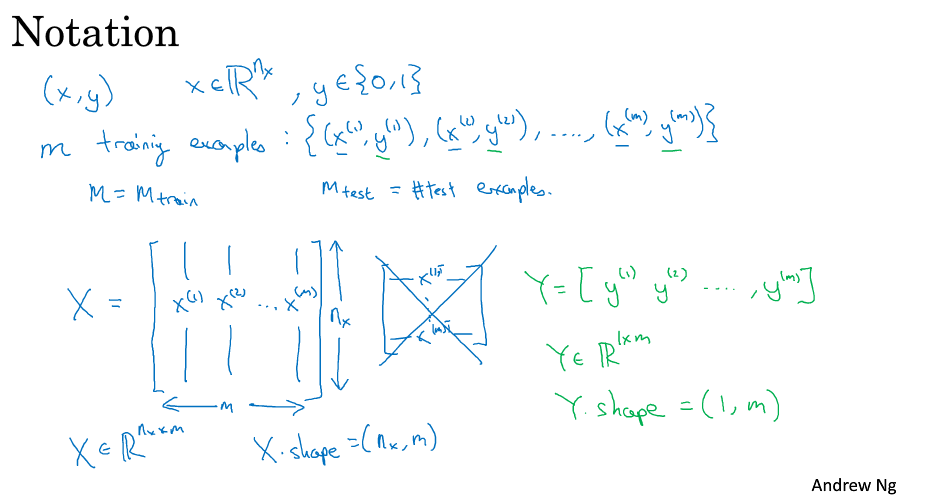 Notation
(x,y) x∈ℝ^{n_x}, y∈{0,1}
m training examples: {(x^{(1)}, y^{(1)}), (x^{(2)}, y^{(2)}), ...., (x^{(m)}, y^{(m)})}
M = M_{train} M_{test} = #test examples.
X = [ x^{(1)} x^{(2)} ... x^{(m)} ] n_x
m
x^{(1)T}
⋮
x^{(m)T}
X ∈ ℝ^{n_x × m} X.shape = (n_x, m)
Y = [ y^{(1)} y^{(2)} ...., y^{(m)} ]
Y ∈ ℝ^{1×m}
Y.shape = (1, m)
Andrew Ng